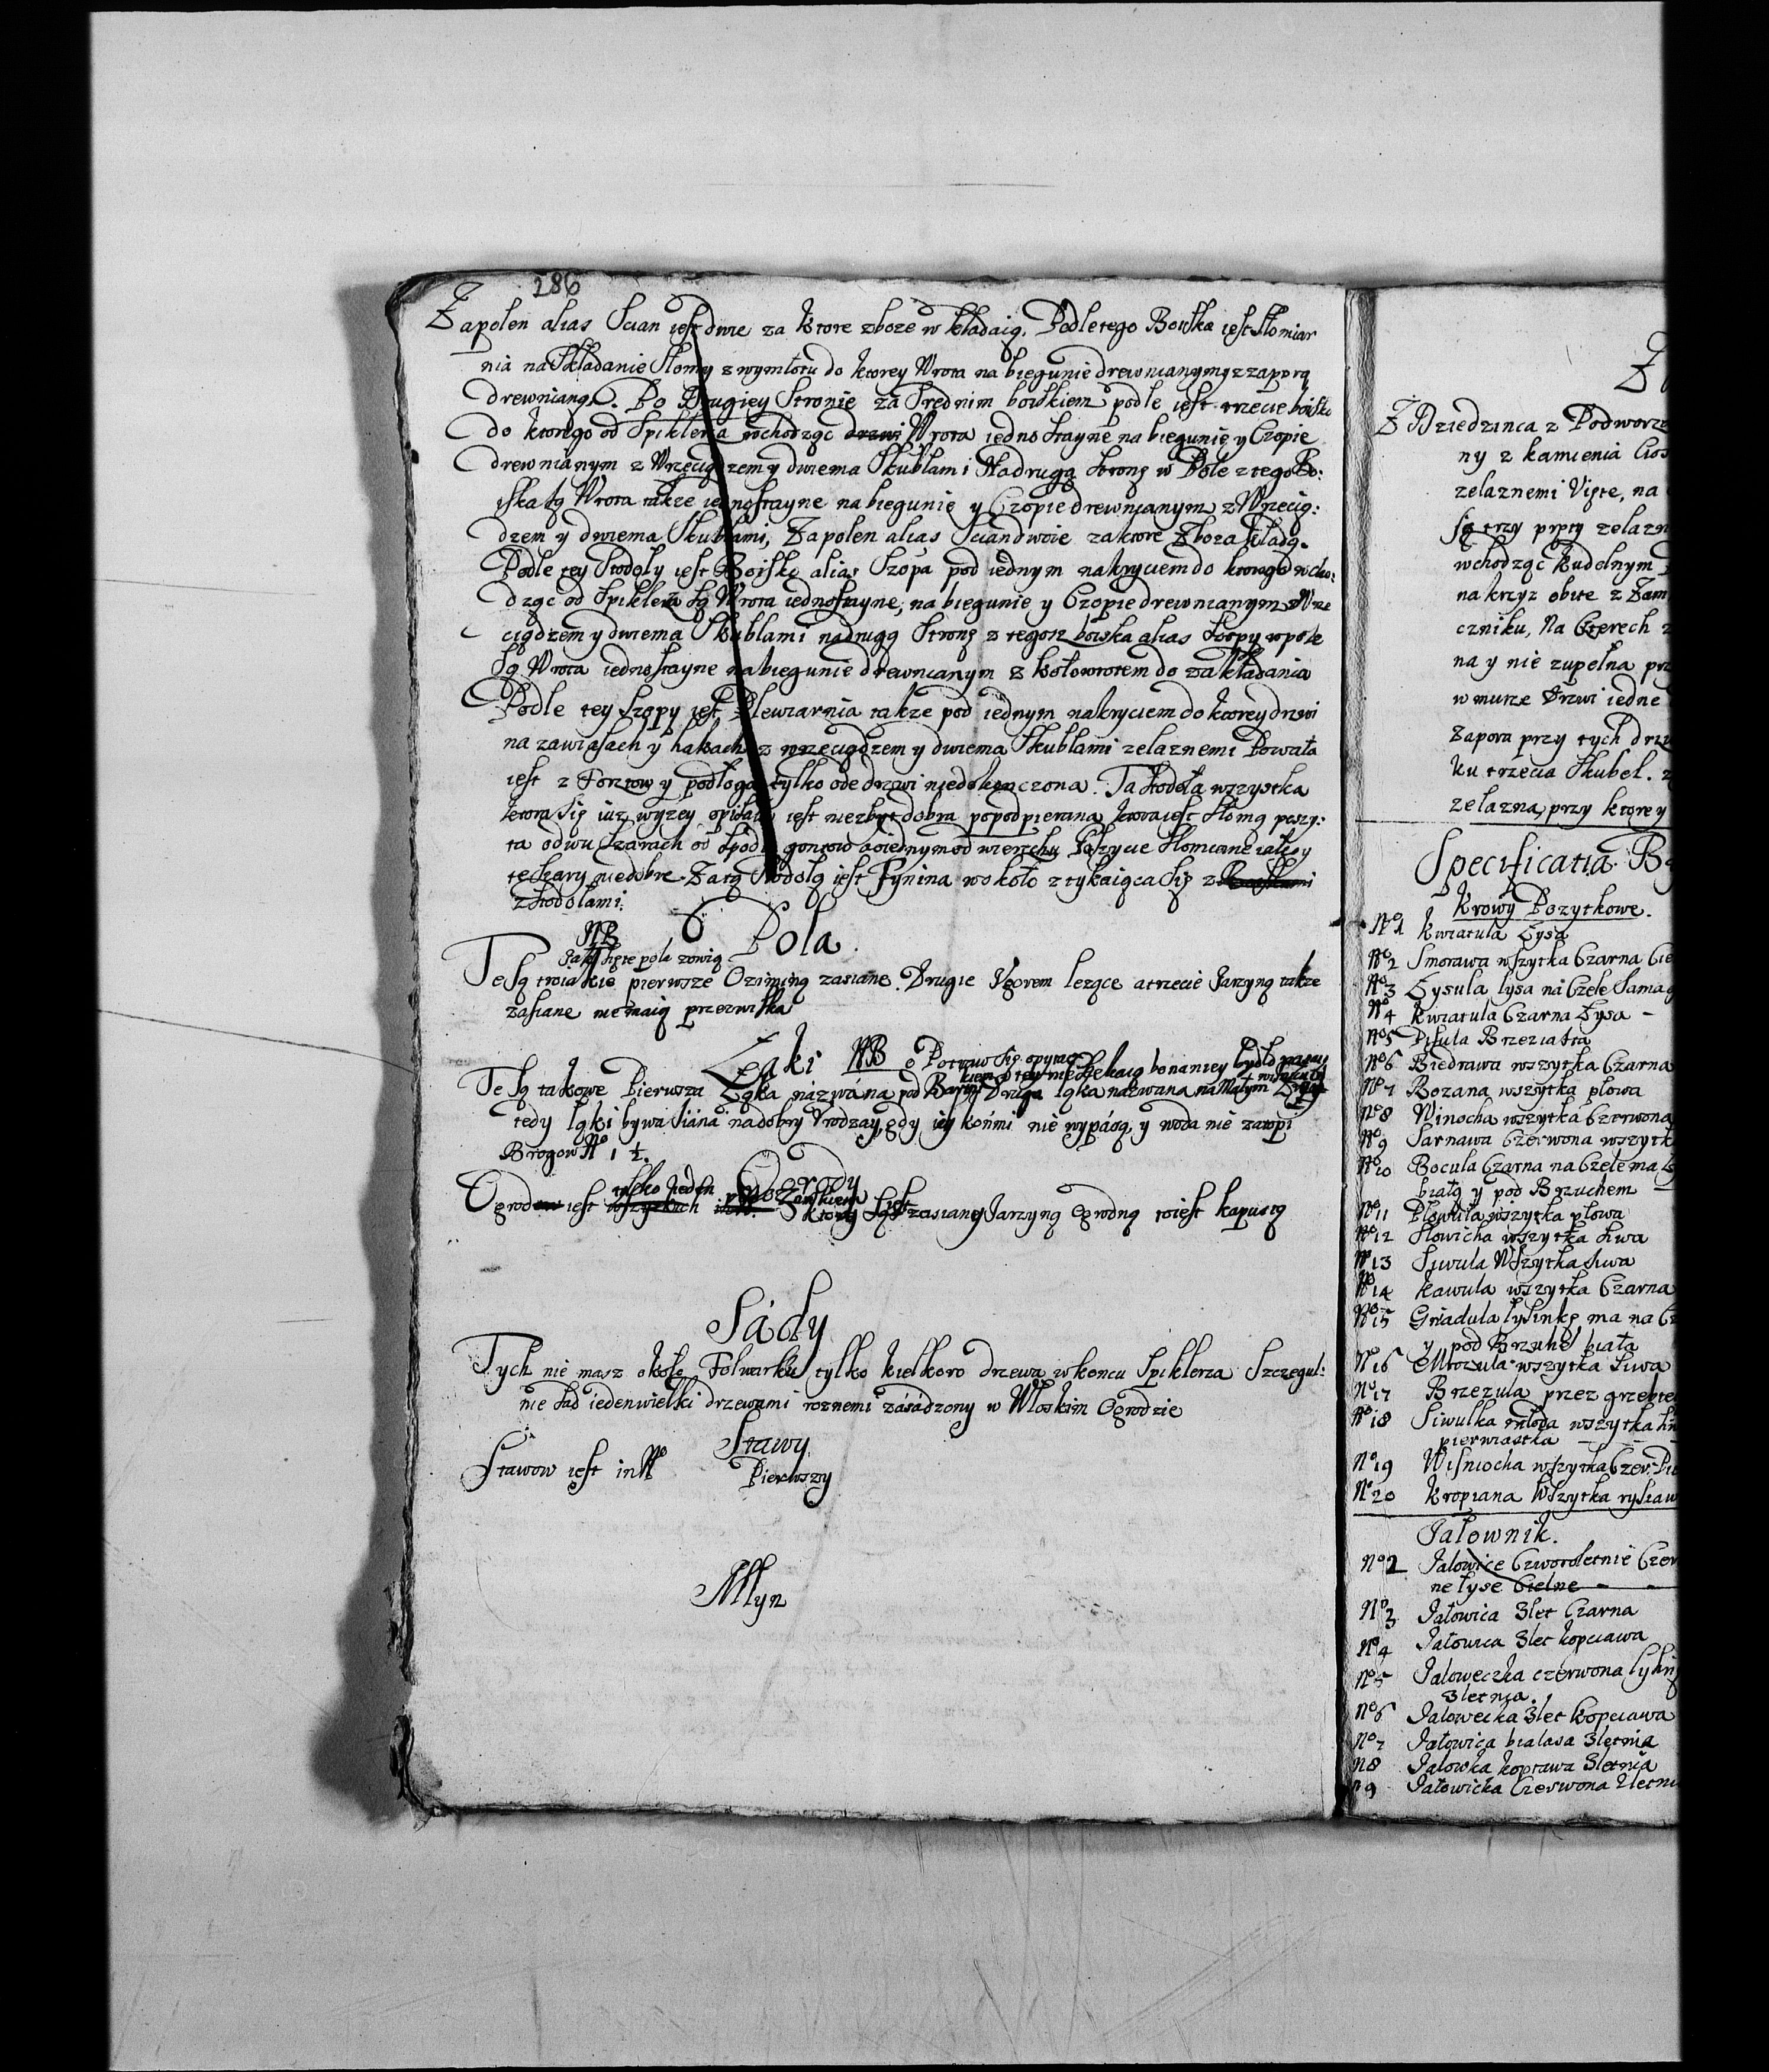 286
Zapolen alias Scian iest dwie za ktore zboze wkładaią. Podle tego Boiska iest Słomiar
nia na składanie Słomy z wymłotu do ktorey Wrota na biegunie drewnianym z zaporą
drewnianą. Po Drugiey Stronie za Srednim boiskiem podle iest trzecie boisko
do ktorego od Spiklerza wchodząc drzwi Wrota iednostayne na biegunie y Czopie
drewnianym z Wrzeciądzem y dwiema Skublami Na drugą stronę w Pole z tego Bo:
iska są Wrota takze iednostayne na biegunie y Czopie drewnianym z Wrzecią:
dzem y dwiema Skublami, Zapolen alias Scian dwoie za ktore Zboza kladą.
Podle tey Stodoły iest Boisko alias Szopa pod iednym nakryciem do ktorego wcho:
dząc od Spiklerza są Wrota iednostayne, na biegunie y Czopie drewnianym z Wrze
ciądzem y dwiema Skublami na drugą Stronę z tegosz boiska alias szopy w pole
są Wrota iednostayne na biegunie drewnianym z kołowrotem do zakładania
Podle tey szopy iest Plewiarnia takze pod iednym nakryciem do ktorey drzwi
na zawiasach y hakach z wrzeciądzem y dwiema Skublami zelaznemi Powała
iest z Forztow y podłoga tylko ode drzwi niedokonczona. Ta stodoła wszystka
ktora się iuz wyzey opisała iest niezbyt dobra popodpierana ktora iest słomą poszy:
ta o dwu szarach od spodu gontow a o iednym od wierzchu Poszycie słomiane całe y
te szary niedobre. Za tą Stodołą iest Tynina wokoło ztykaiąca się z Boiskami
z stodolami.
NB
Pola.
Jak się te pola zowią
Te są troiakie pierwsze Oziminą zasiane. Drugie Vgorem lezące a trzecie Jarzyną takze
zasiane nie maią przezwiska
Łąki NB o Potraw się opytac
Te są takowe Pierwsza Łąka nazwana pod Druga łąka nazwana na Małym
tedy łąki bywa siana na dobry Vrodzay, gdy iey końmi nie wypásą, y woda nie zatopi
Brogow No 1 ½.
Ogrody
tylko ieden
Ogrodow iest wszystkich ktory są zasiany Jarzyną Ogrodną to iest kapustą
Sády
Tych nie masz około Folwarku tylko kielkoro drzewa w koncu Spiklerza Szczegul:
nie sad ieden wielki drzewami roznemi zásádzony w Włoskim Ogrodzie
Stawy
Stawow iest in No Pierwszy
Młyn
Z Dziedzinca z Podworz
ny z kamienia Cios
zelaznemi Vięte, na
są trzy pręty zelazn
wchodząc kudelnym
na krzyz obite z Zam
czniku, Na Czterech z
na y nie zupełna prz
w murze Drzwi iedne
Zapora przy tych drz
ku trzecia Skubel. z
zelazna, przy ktorey
Specificatia By
Krowy Pozytkowe.
No 1 Kwiatula Łysa
No 2 Smorawa wszytka Czarna Cie
No 3 Łysula łysa na Czele sama
No 4 Kwiatula Czarna Łysa -
No 5 Pisula Brzeziasta
No 6 Biedrawa wszytka Czarna
No 7 Bozana wszytka płowa
No 8 Winocha wszytka Czerwona
No 9 Sarnawa Czerwona wszytk
No 10 Bocula Czarna na Czele ma
białą y pod Brzuchem
No 11 Płowula wszytka płowa
No 12 Słowicha wszytka siwa
No 13 Siwula Wszytka siwa
No 14 Kawula wszytka Czarna
No 15 Gniadula łysinkę ma na Cz
y pod Brzuhe biała
No 16 Mrozula wszytka siwa
No 17 Brzezula przez grzebie
No 18 Siwulka młoda wszytka
pierwiastka
No 19 Wisniocha wszytka Czer: Pie
No 20 Kropiana Wszytka rysiaw
Jałownik.
No 2 Jałowice Czworoletnie Czer
ne łyse Cielne -
No 3 Jałowica 3 let Czarna
No 4 Jałowica 3 let kopciawa
No 5 Jałoweczka czerwona łysin
3 letnia.
No 6 Jałowecka 3 let kopciawa
No 7 Jałowica białasa 3 letnia
N 8 Jałowka koprawa 3 letnia
9 Jałowicka Czerwona 2 letni